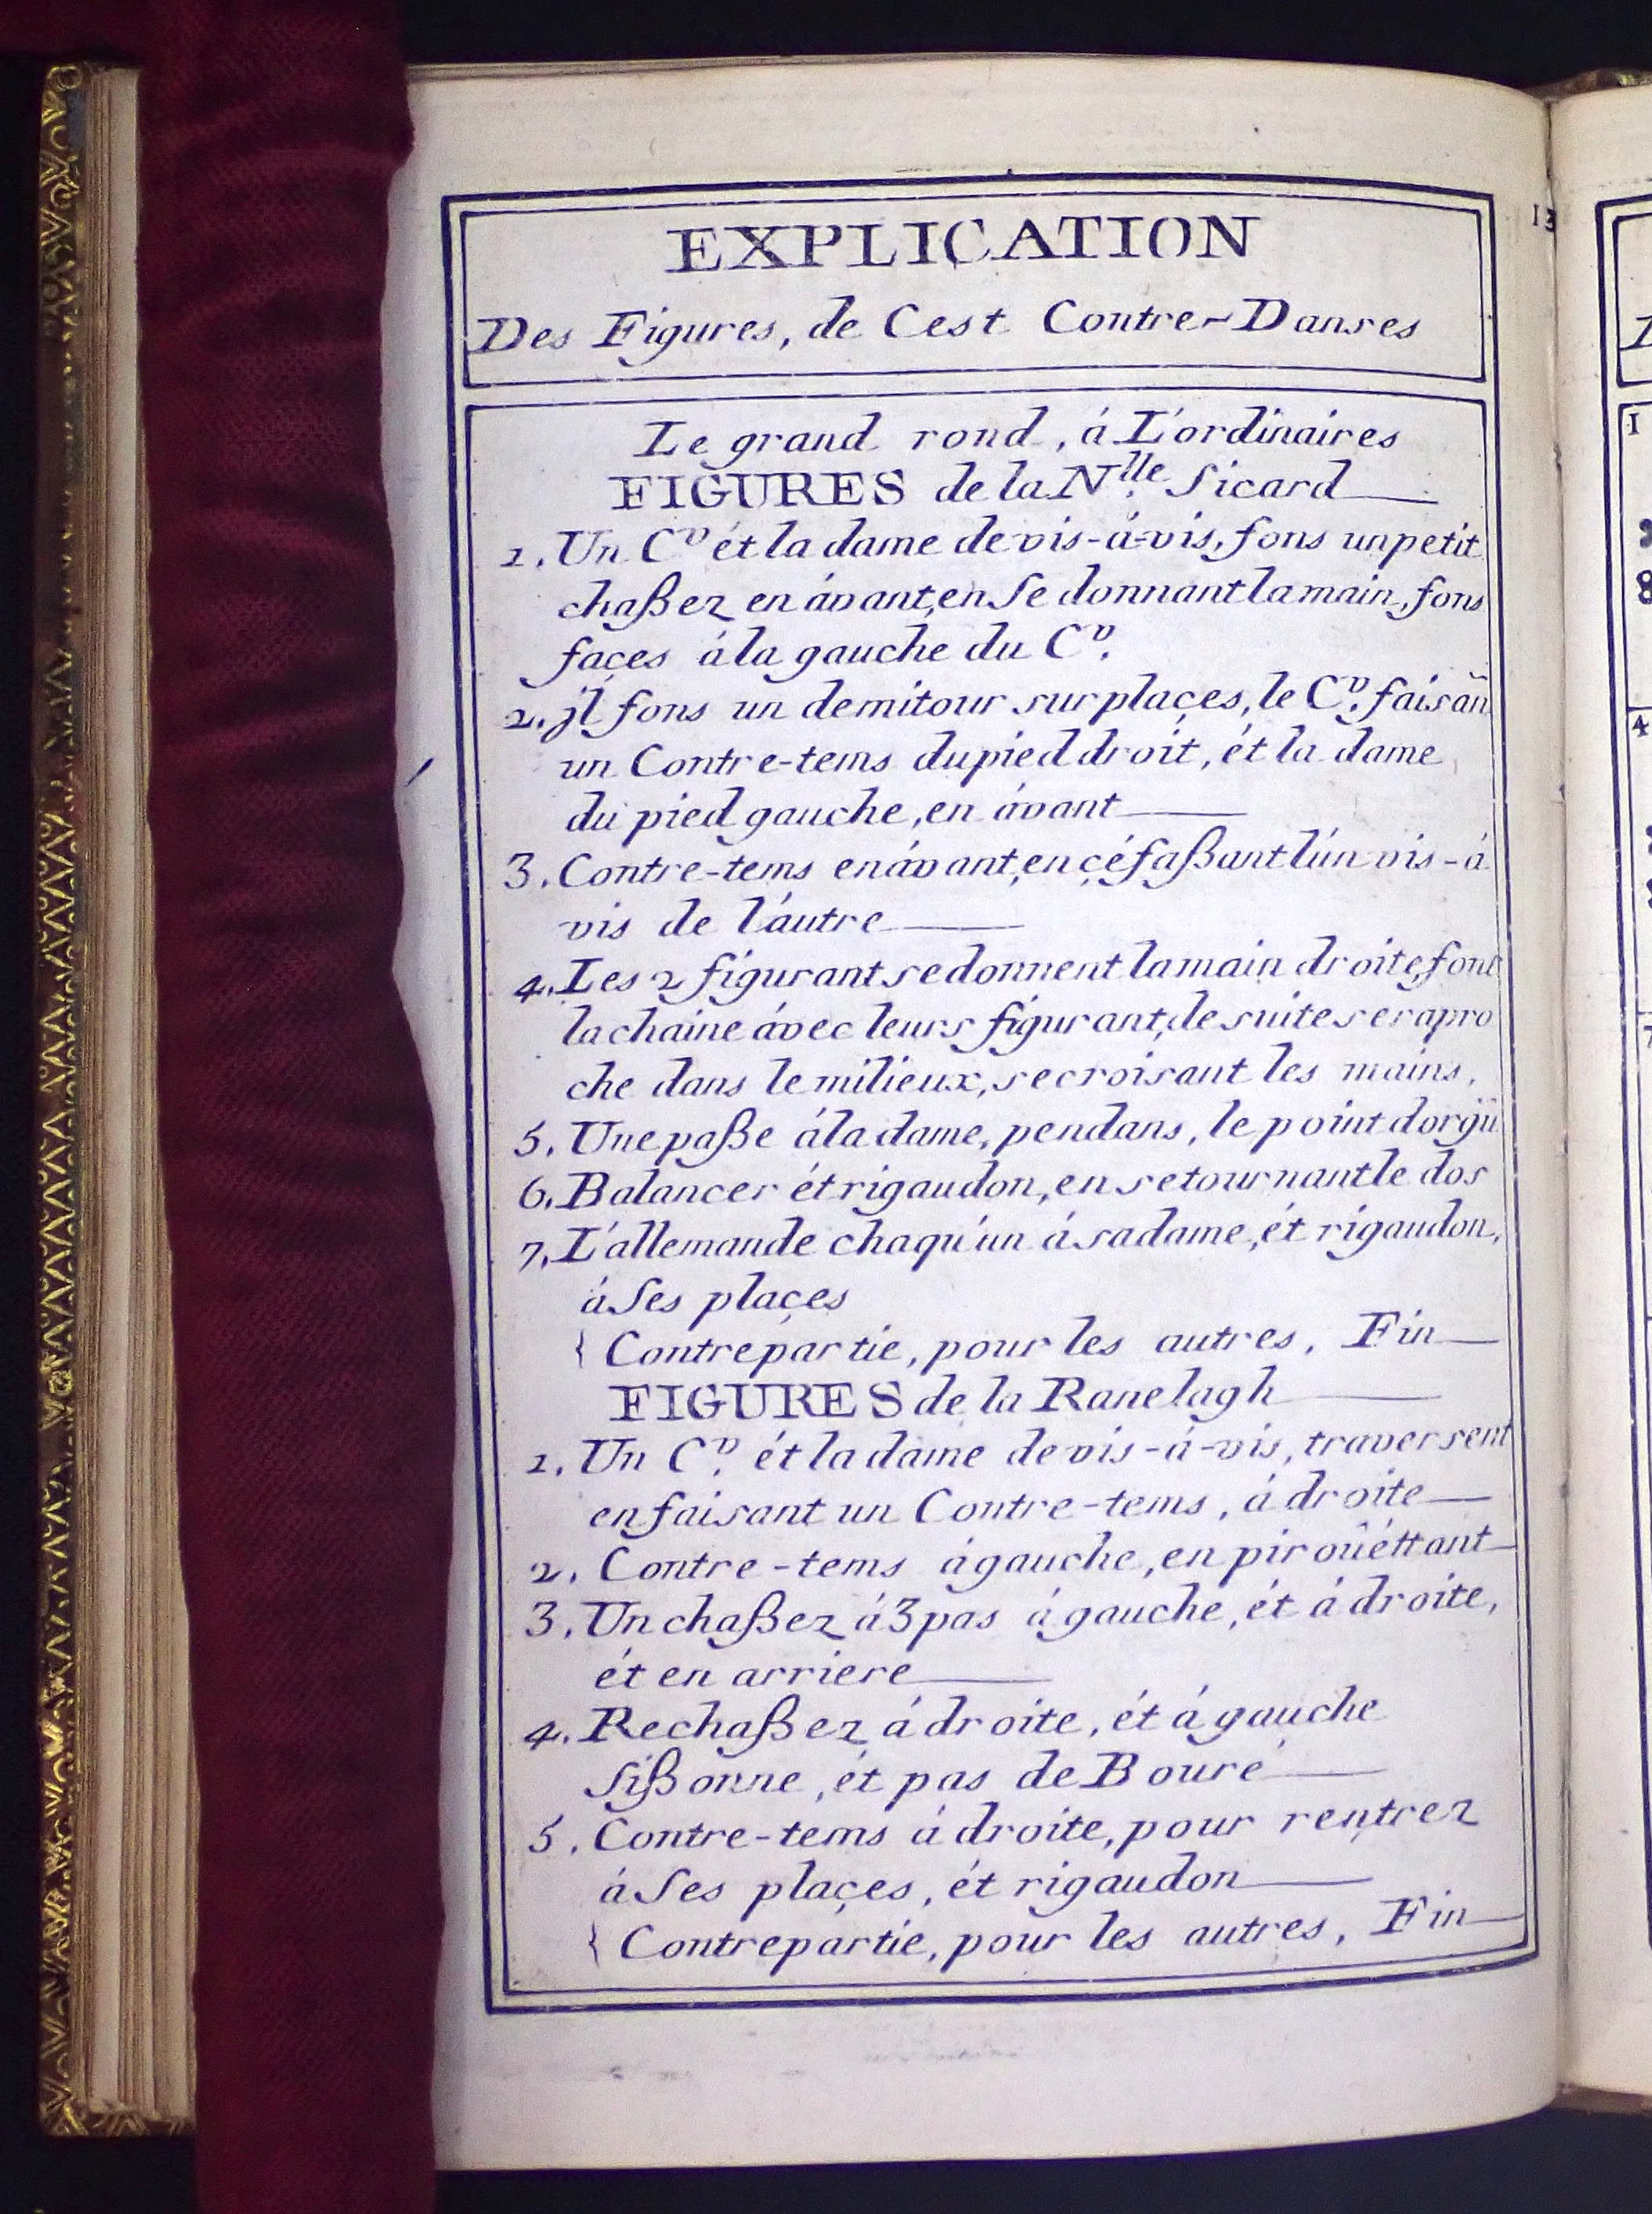 13
EXPLICATION
Des Figures, de Cest Contre-Danses
Le grand rond, á L'ordinaires
FIGURES de la Nlle. Sicard
1. Un C.r ét la dame de vis-á-vis, fons un petit
chaßez en ávant, en Se donnant la main, fons
façes á la gauche du C.r
2. jl fons un demi tour sur plaçes, le C.r faisan
un Contre-tems du pied droit, ét la dame
du pied gauche, en ávant
3. Contre-tems en ávant, en çéfaßant l'ún vis-á
vis de l'autre
4. Les 2 figurant se donnent la main droite, font
la chaine ávec leurs figurant, de suite se rapro
che dans le milieux, se croisant les mains,
5. Une paße á la dame, pendans, le point dorgü
6. Balancer ét rigaudon, en se tournant le dos
7. L'allemande chaqu'un á sa dame, ét rigaudon,
á Ses plaçes
{ Contrepartie, pour les autres, Fin
FIGURES de la Ranelagh
1. Un C.r ét la dame de vis-á-vis, traversent
en faisant un Contre-tems, á droite
2. Contre-tems á gauche, en piroûéttant
3. Un chaßez á 3 pas á gauche, ét á droite,
ét en arriere
4. Rechaßez á droite, ét á gauche
Sißonne, ét pas de Bouré
5. Contre-tems á droite, pour rentrez
á Ses plaçes, ét rigaudon
{ Contrepartie, pour les autres, Fin
1
4